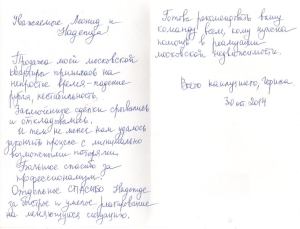 Уважаемые Леонид и
Надежда!
Продажа моей московской
квартиры пришлась на
непростое время - падение
рубля, нестабильность.
сделки срывались
и откладывались.
И тем не менее нам удалось
закончить с минимально
возможными потерями.
Большое спасибо за
профессионализм!
Отдельное СПАСИБО Надежде
за быстрое и умелое реагирование
на меняющуюся ситуацию.
Готова рекомендовать вашу
команду всем, кому нужна
помощь в реализации
московской недвижимости.
Всего наилучшего,
2014